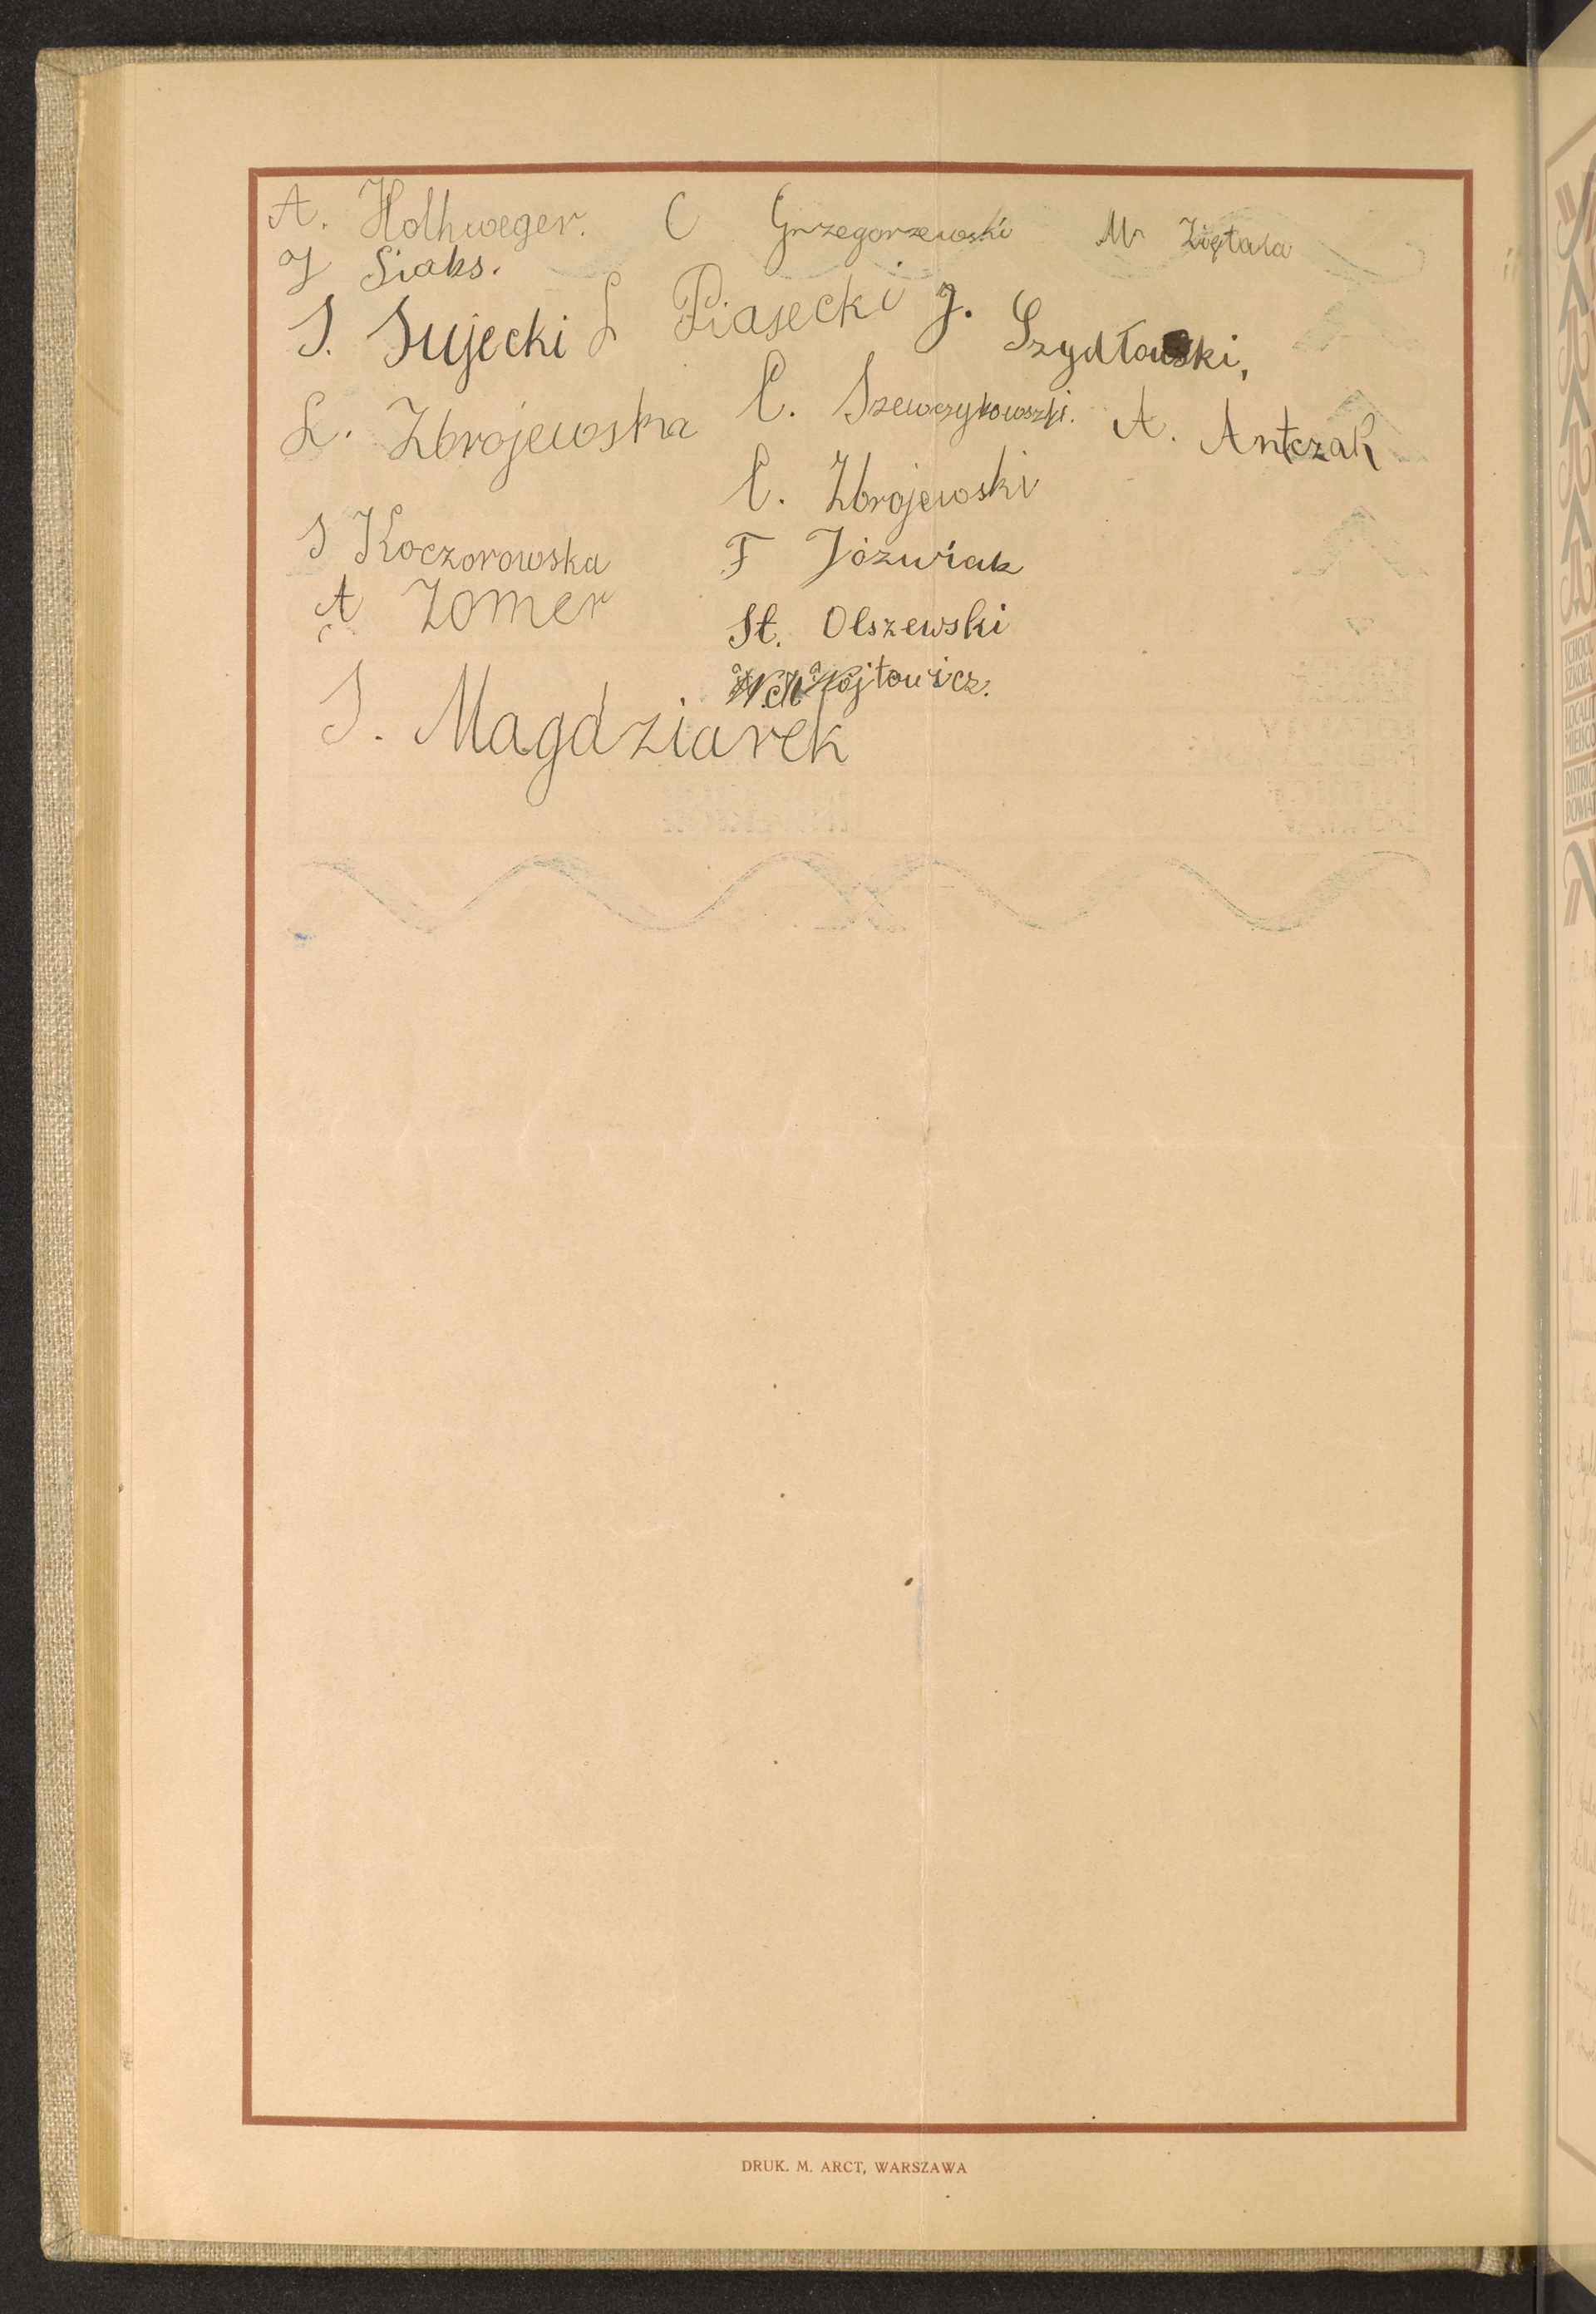 A. Holhweger. C Grzegorzewski M Ziętala
J Siaks.
S. Sujecki L Piasecki J. Szydłowski,
L. Zbrojewska C. Szewczykowski. A. Antczak
C. Zbrojewski
S Koczorowska F Jóźwiak
A Zomer St. Olszewski
Wójtowicz.
S. Magdziarek
DRUK. M. ARCT, WARSZAWA